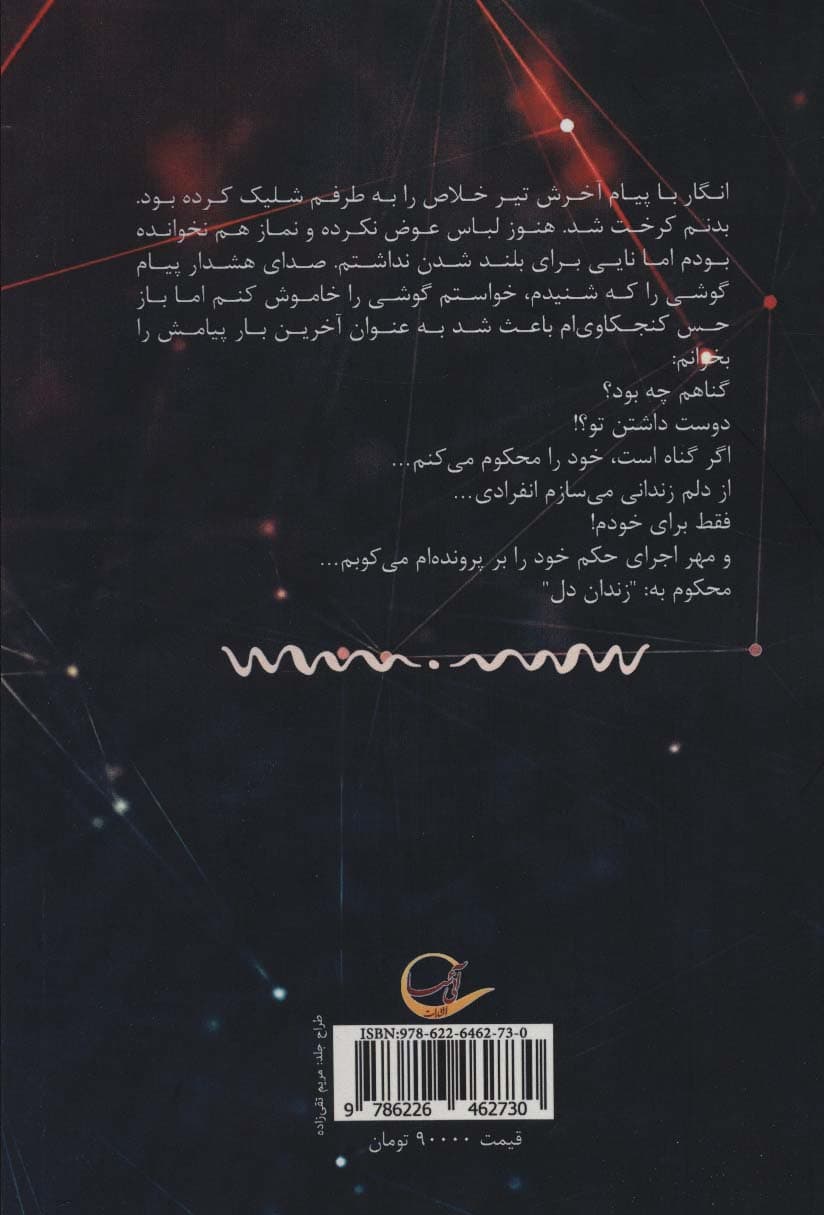 انگار با پیام آخرش تیر خلاص را به طرفم شلیک کرده بود.
بدنم کرخت شد. هنوز لباس عوض نکرده و نماز هم نخوانده
بودم اما نایی برای بلند شدن نداشتم. صدای هشدار پیام
گوشی را که شنیدم، خواستم گوشی را خاموش کنم اما باز
حس کنجکاوی‌ام باعث شد به عنوان آخرین بار پیامش را
بخوانم:
گناهم چه بود؟
دوست داشتن تو؟!
اگر گناه است، خود را محکوم می‌کنم...
از دلم زندانی می‌سازم انفرادی...
فقط برای خودم!
و مهر اجرای حکم خود را بر پرونده‌ام می‌کوبم...
محکوم به: "زندان دل"
انتشارات
ISBN:978-622-6462-73-0
9 786226 462730
قیمت ۹۰۰۰۰ تومان
طراح جلد: مریم تقی‌زاده